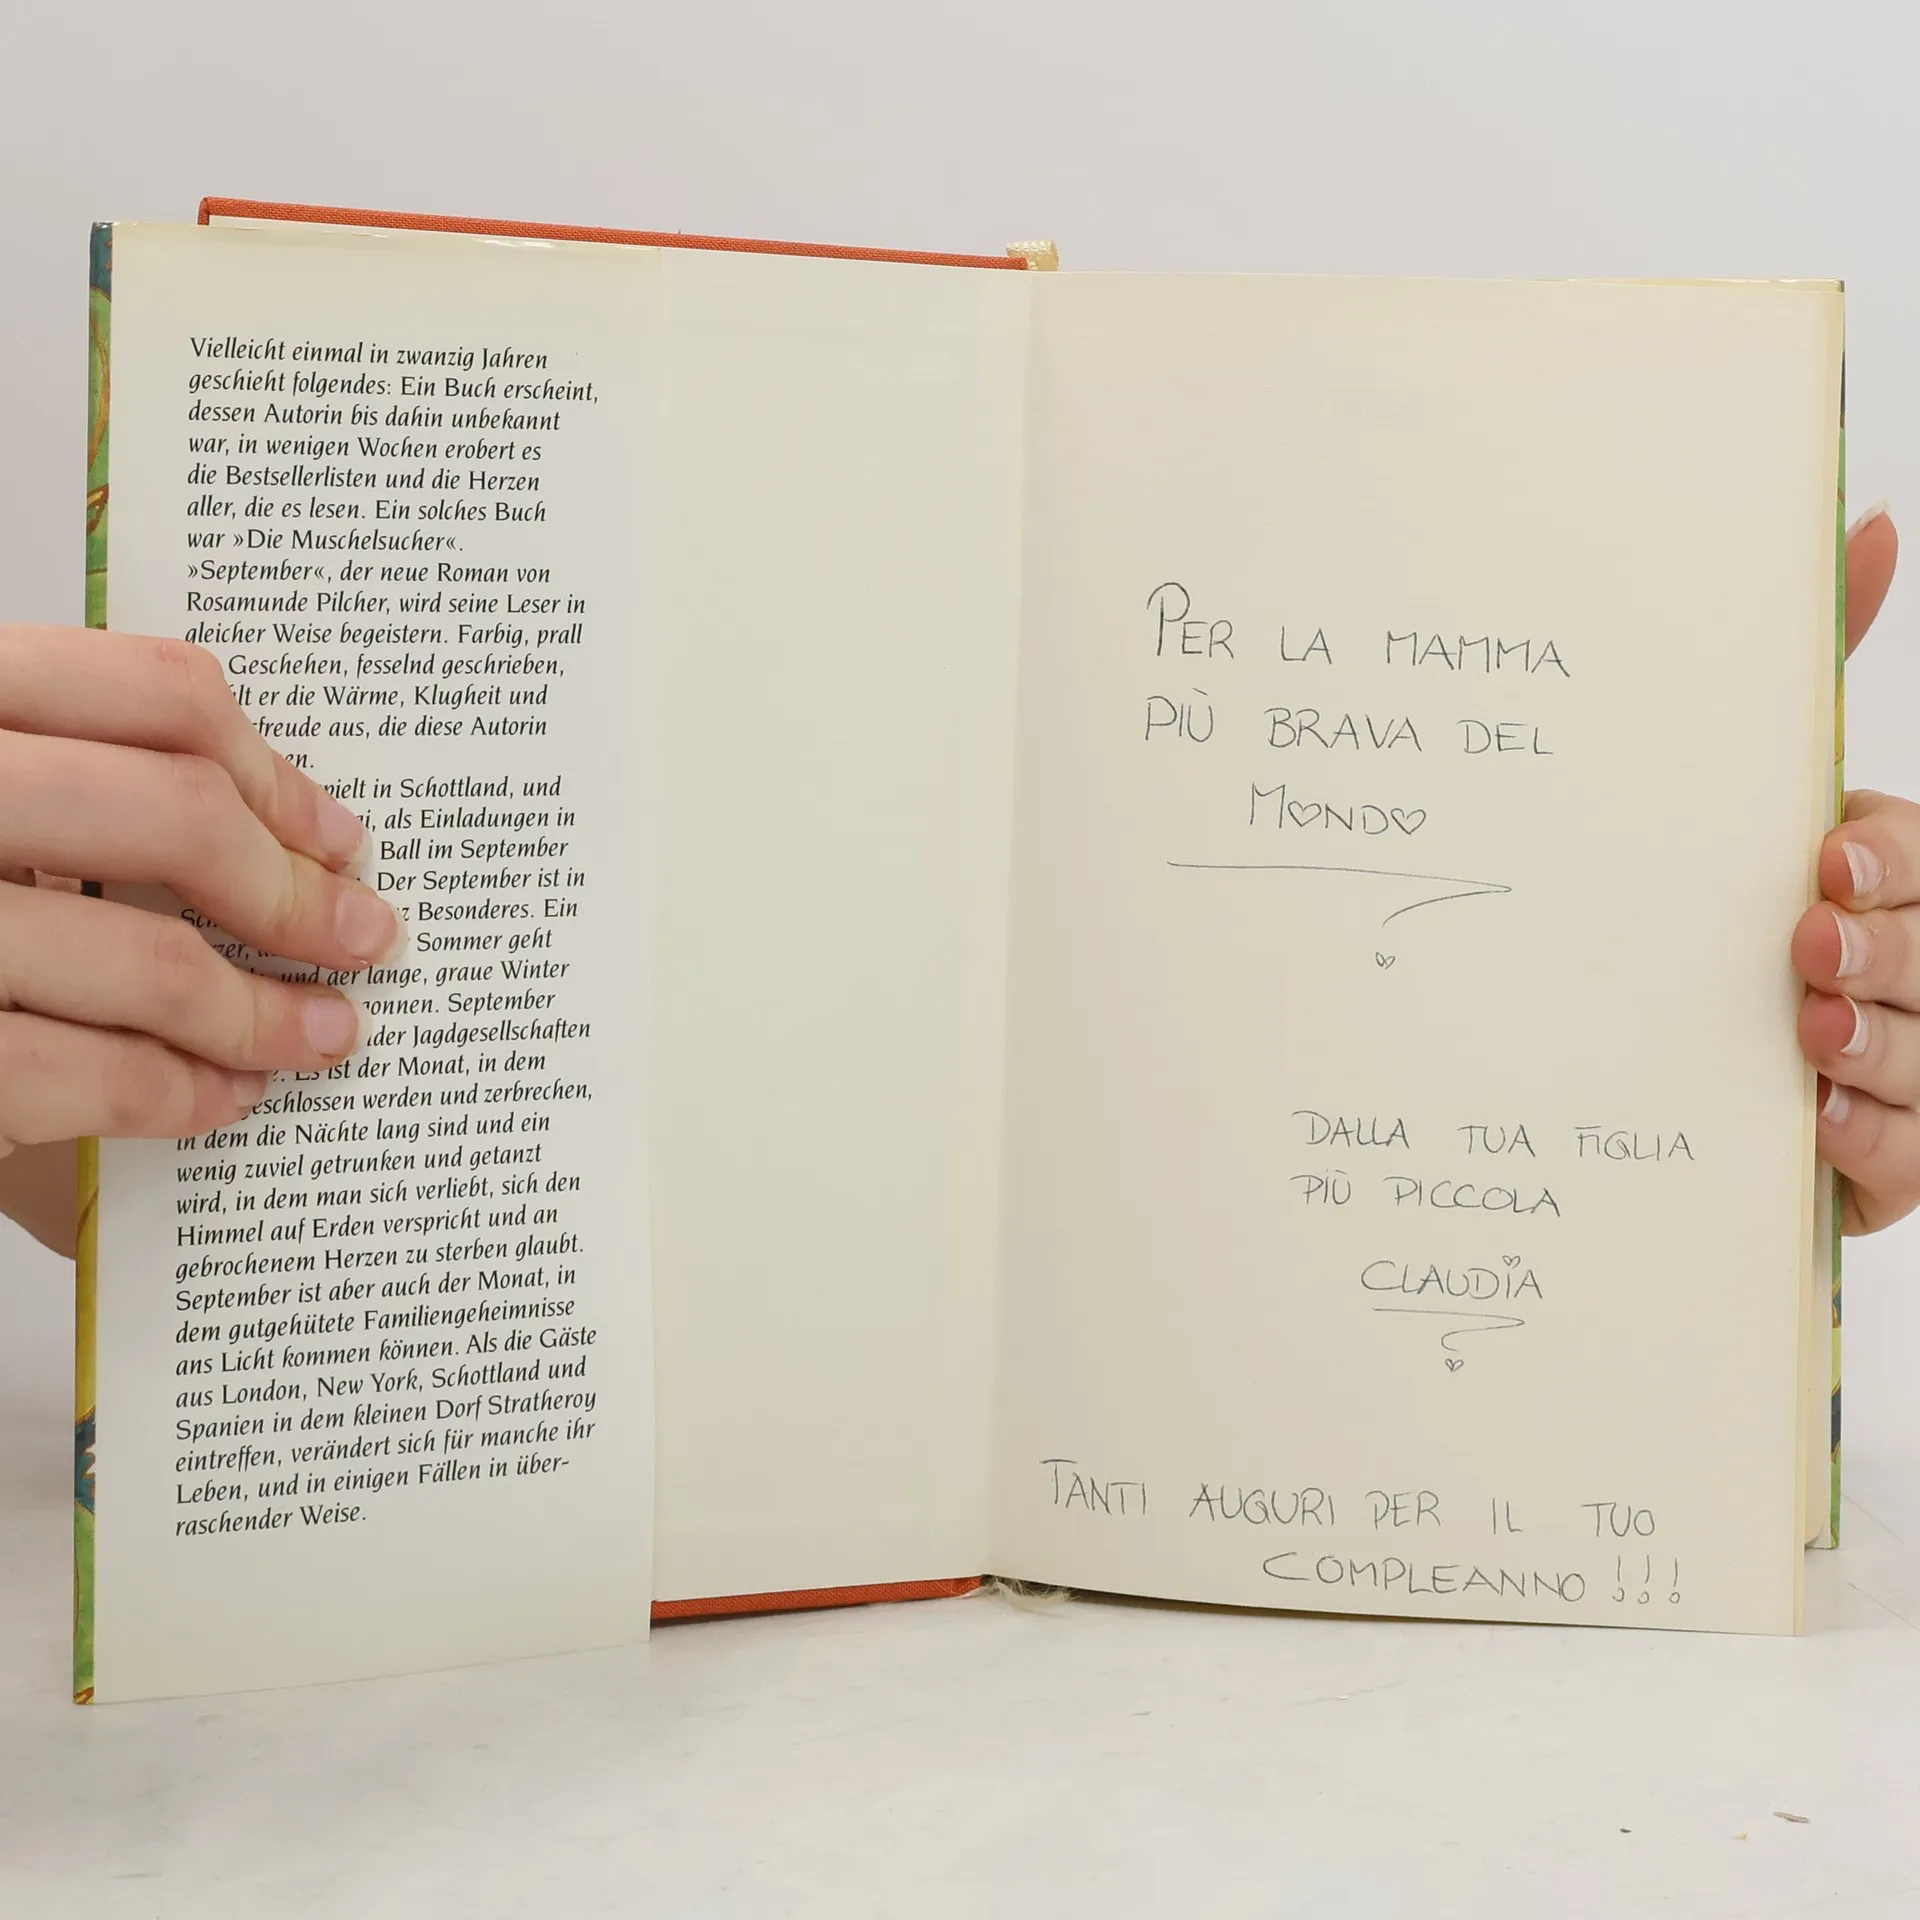 Vielleicht einmal in zwanzig Jahren
geschieht folgendes: Ein Buch erscheint,
dessen Autorin bis dahin unbekannt
war, in wenigen Wochen erobert es
die Bestsellerlisten und die Herzen
aller, die es lesen. Ein solches Buch
war »Die Muschelsucher«.
»September«, der neue Roman von
Rosamunde Pilcher, wird seine Leser in
gleicher Weise begeistern. Farbig, prall
Geschehen, fesselnd geschrieben,
er die Wärme, Klugheit und
aus, die diese Autorin
in Schottland, und
als Einladungen in
Ball im September
Der September ist in
Besonderes. Ein
Sommer geht
und der lange, graue Winter
September
Jagdgesellschaften
Es ist der Monat, in dem
werden und zerbrechen,
in dem die Nächte lang sind und ein
wenig zuviel getrunken und getanzt
wird, in dem man sich verliebt, sich den
Himmel auf Erden verspricht und an
gebrochenem Herzen zu sterben glaubt.
September ist aber auch der Monat, in
dem gutgehütete Familiengeheimnisse
ans Licht kommen können. Als die Gäste
aus London, New York, Schottland und
Spanien in dem kleinen Dorf Stratheroy
eintreffen, verändert sich für manche ihr
Leben, und in einigen Fällen in über-
raschender Weise.
PER LA MAMMA
PIÙ BRAVA DEL
MONDO
DALLA TUA FIGLIA
PIÙ PICCOLA
CLAUDIA
TANTI AUGURI PER IL TUO
COMPLEANNO !!!